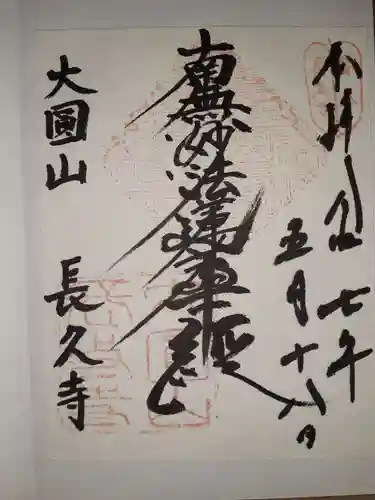 奉拝 令和七年
五月十八日
南無妙法蓮華経
大圓山 長久寺